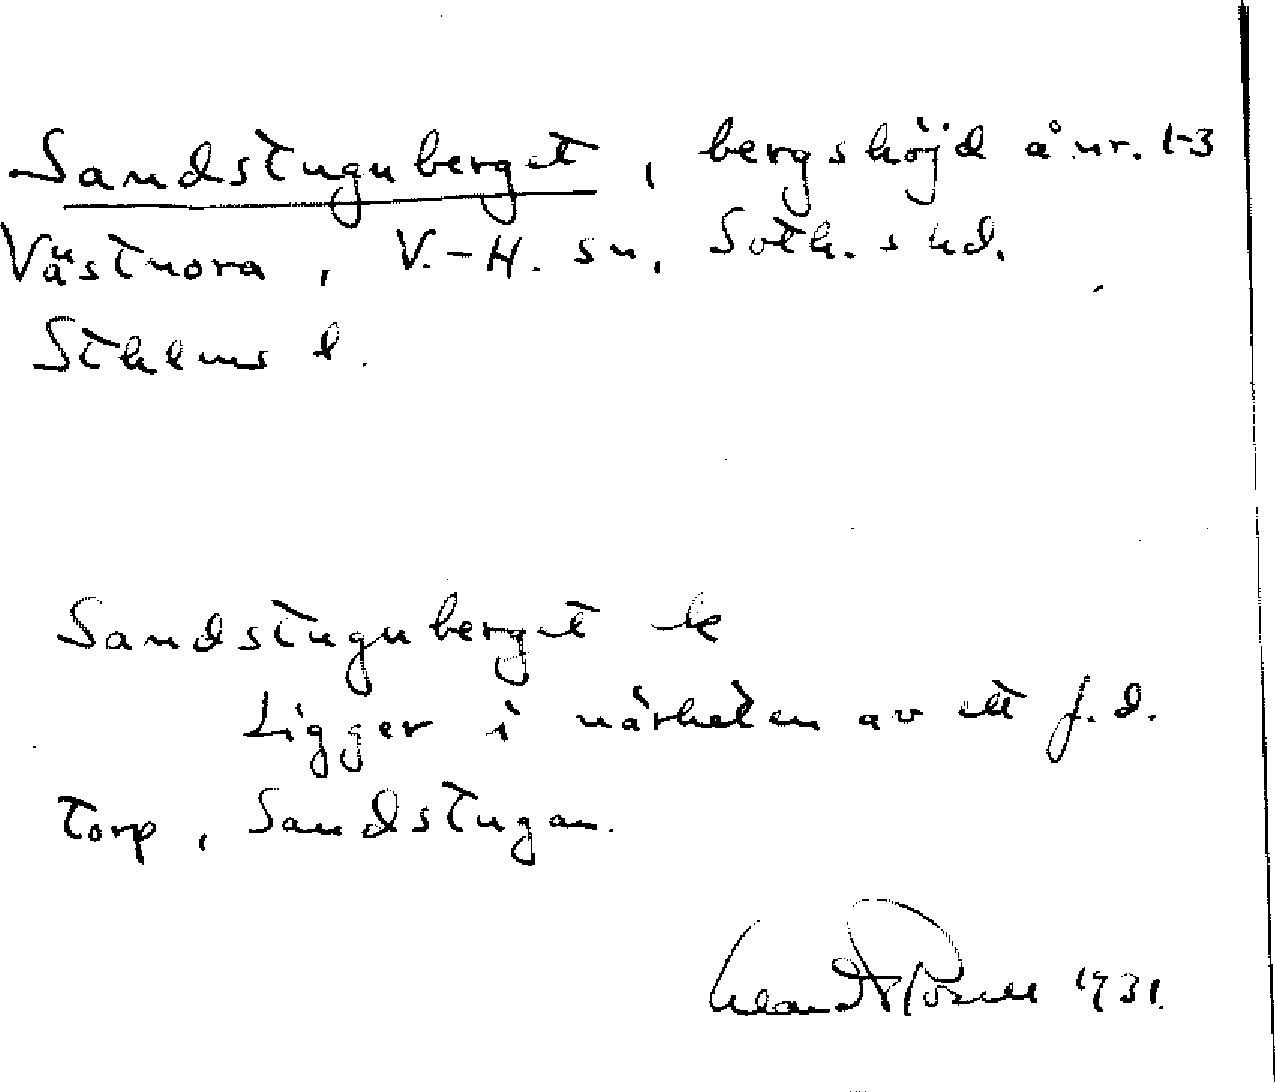 Sandstuguberget, bergshöjd å nr. 1-3
Västnora, V.-H. sn, Soth. s hd.
Sthlms l.
Sandstuguberget
Ligger i närheten av ett f.d.
torp, Sandstugan.
1931.